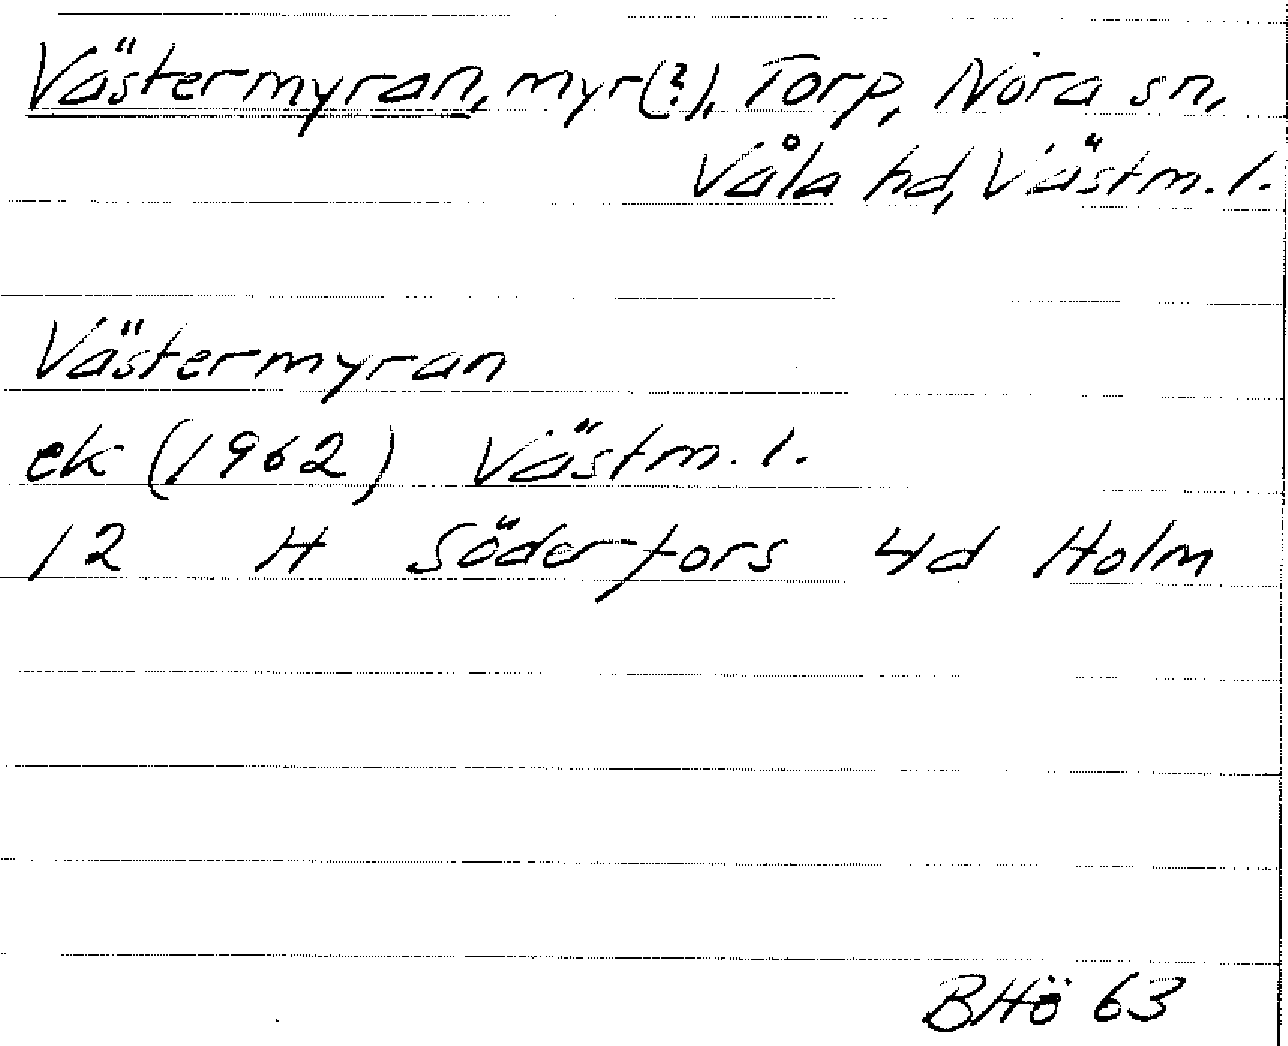 Västermyran, myr(?), Torp, Nora sn,
Våla hd, Västm. l.
Västermyran
ek (1962) Västm. l.
12 H Söderfors 4d Holm
BHö 63